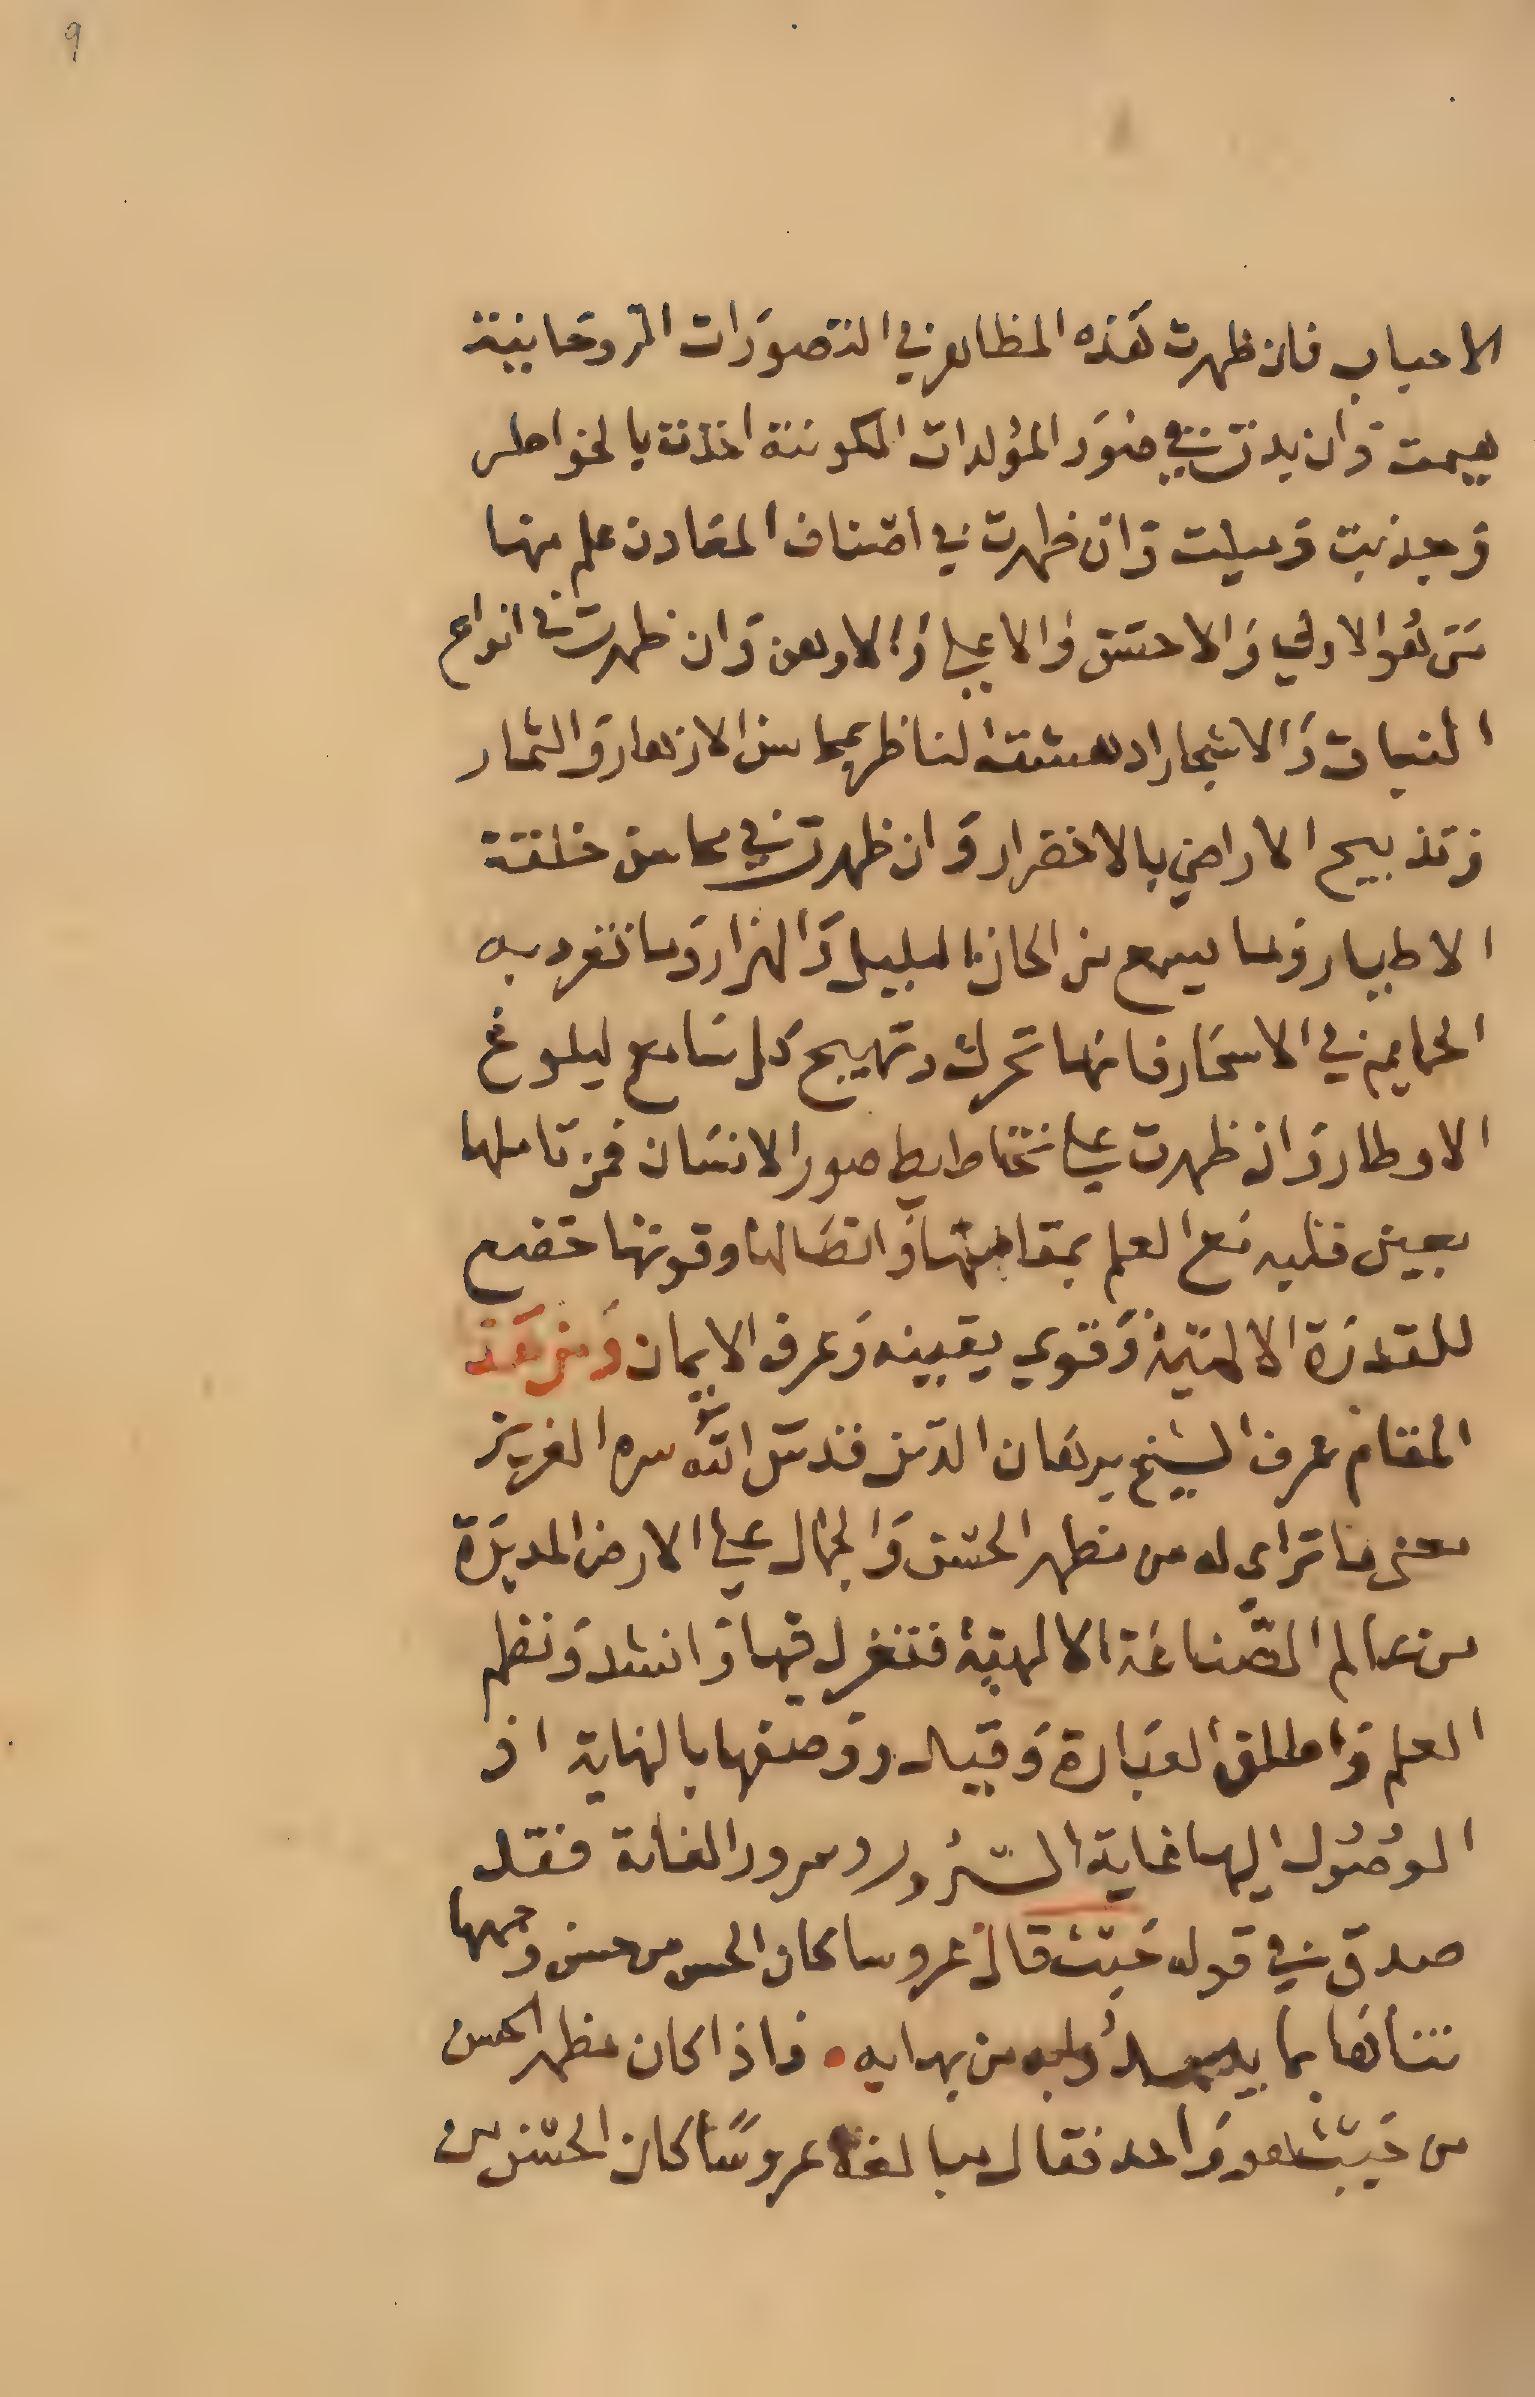 ٩
الاحباب فان ظهرت هَذه المظاهر في التصورَات الروحَانية
هيمت وَان بدت في صوَر المؤلدات المكونة اخذت بالخواطر
وَجذبت وَسلبت وَان ظهرت في اصناف المعَادن علم منها
مَن هُوَ الاولي وَالاحسَن وَالاعلي وَالاوهن وَان ظهرت في انواع
النبات وَالاشجار ادهشت الناظر بمحاسن الازهار وَالثمار
وتذبيح الاراضي بالاخضرار وَان ظهرت في محاسن خلقة
الاطيار وَما يسمع من الحان البلبل وَالهزار وَما تغرد به
الحمايم في الاسحَار فانها تحرك وتهيج كل سَامع لبلوغ
الاوطار وَان ظهرت علي تخاطيط صور الانسَان فمن تاملها
بعين قلبه مَع العلم بمقامهَا وَاتصَالها وقوتها خضع
للقدرَة الالهيَة وَقوي يقينه وَعرف الايمان وَمن هَذا
المقام عرف الشيخ برهَان الدين قدسَ اللّه سره العزيز
معنى مَا تراي له من مظهر الحسن وَالجمَال علي الارض المدبرَة
من عالم الصّناعَة الالهية فتغزل فيها وَانشد وَنظم
العلم وَاطلق العبَارة وَقيد ووَصفها بالنهاية اذ
الوصُول اليها غاية السّرُور وسرور الغاية فقد
صدق في قوله حَيث قال عروسا كان الحسن من حسن وجهها
تناهَا بما يبديه من بهدايه . فاذا كان مظهر الحسن
من حَيث هو وَاحد فقال مبالغة عروسًا كان الحسن من